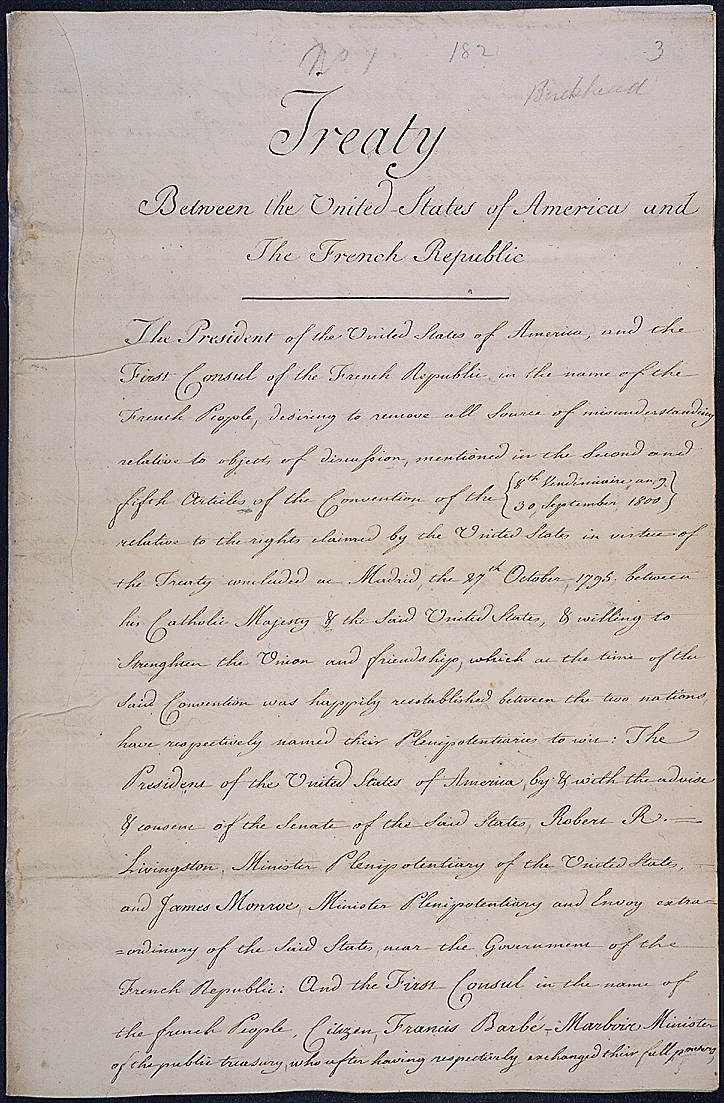 No 1 182 3
Birckhead
Treaty
Between the United States of America and
The French Republic
The President of the United States of America, and the
First Consul of the French Republic in the name of the
French People, desiring to remove all Source of misunderstanding
relative to objects of discussion, mentioned in the Second and
fifth Articles of the Convention of the {8th Vendémiaire, an 9
30 September, 1800}
relative to the rights claimed by the United States in virtue of
the Treaty concluded at Madrid, the 27th October, 1795, between
his Catholic Majesty & the Said United States, & willing to
Strengthen the Union and friendship, which at the time of the
Said Convention was happily reestablished between the two nations,
have respectively named their Plenipotentiaries to wit: The
President of the United States of America, by & with the advice
& consent of the Senate of the Said States, Robert R.
Livingston, Minister Plenipotentiary of the United States,
and James Monroe, Minister Plenipotentiary and Envoy extra=
=ordinary of the Said States, near the Government of the
French Republic: And the First Consul in the name of
the french People, Citizen, Francis Barbé-Marbois Minister
of the public treasury, who after having respectively exchanged their full powers